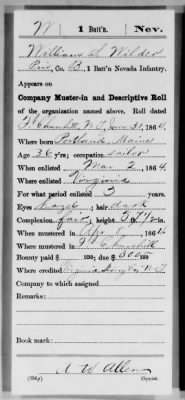 W | 1 Batt'n. | Nev.
William S. Wilder
Priv, Co. B, 1 Batt'n Nevada Infantry.
Appears on
Company Muster-in and Descriptive Roll
of the organization named above. Roll dated
Ft Churchill, N.T., 186
Where born Portland Maine
Age 36 y'rs; occupation sailor
When enlisted Mar 2, 1864.
Where enlisted Virginia
For what period enlisted 3 years.
Eyes hazel; hair dark
Complexion fair; height 5 ft. in.
When mustered in , 186
Where mustered in Ft Churchill
Bounty paid $ 100; due $ 100
Where credited
Company to which assigned
Remarks:
Book mark:
A W Allen
(356g) Copyist.